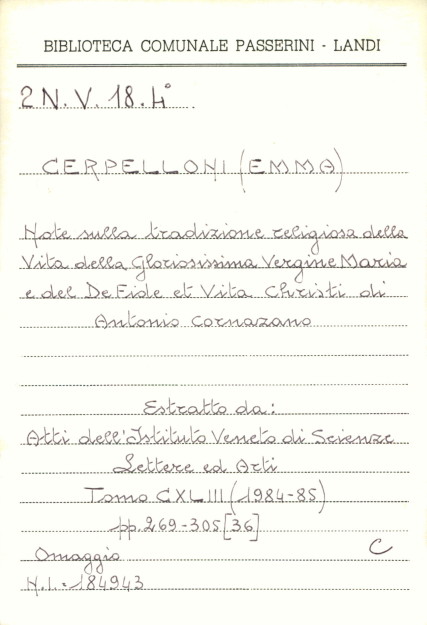 BIBLIOTECA COMUNALE PASSERINI - LANDI
2 N. V. 18. 4°
CERPELLONI (EMMA)
Note sulla tradizione religiosa della
Vita della Gloriosissima Vergine Maria
e del De Fide et Vita Christi di
Antonio Cornazano
Estratto da:
Atti dell'Istituto Veneto di Scienze
Lettere ed Arti
Tomo CXLIII (1984-85)
pp. 269-305 [36]
Omaggio C
N.I. 184943